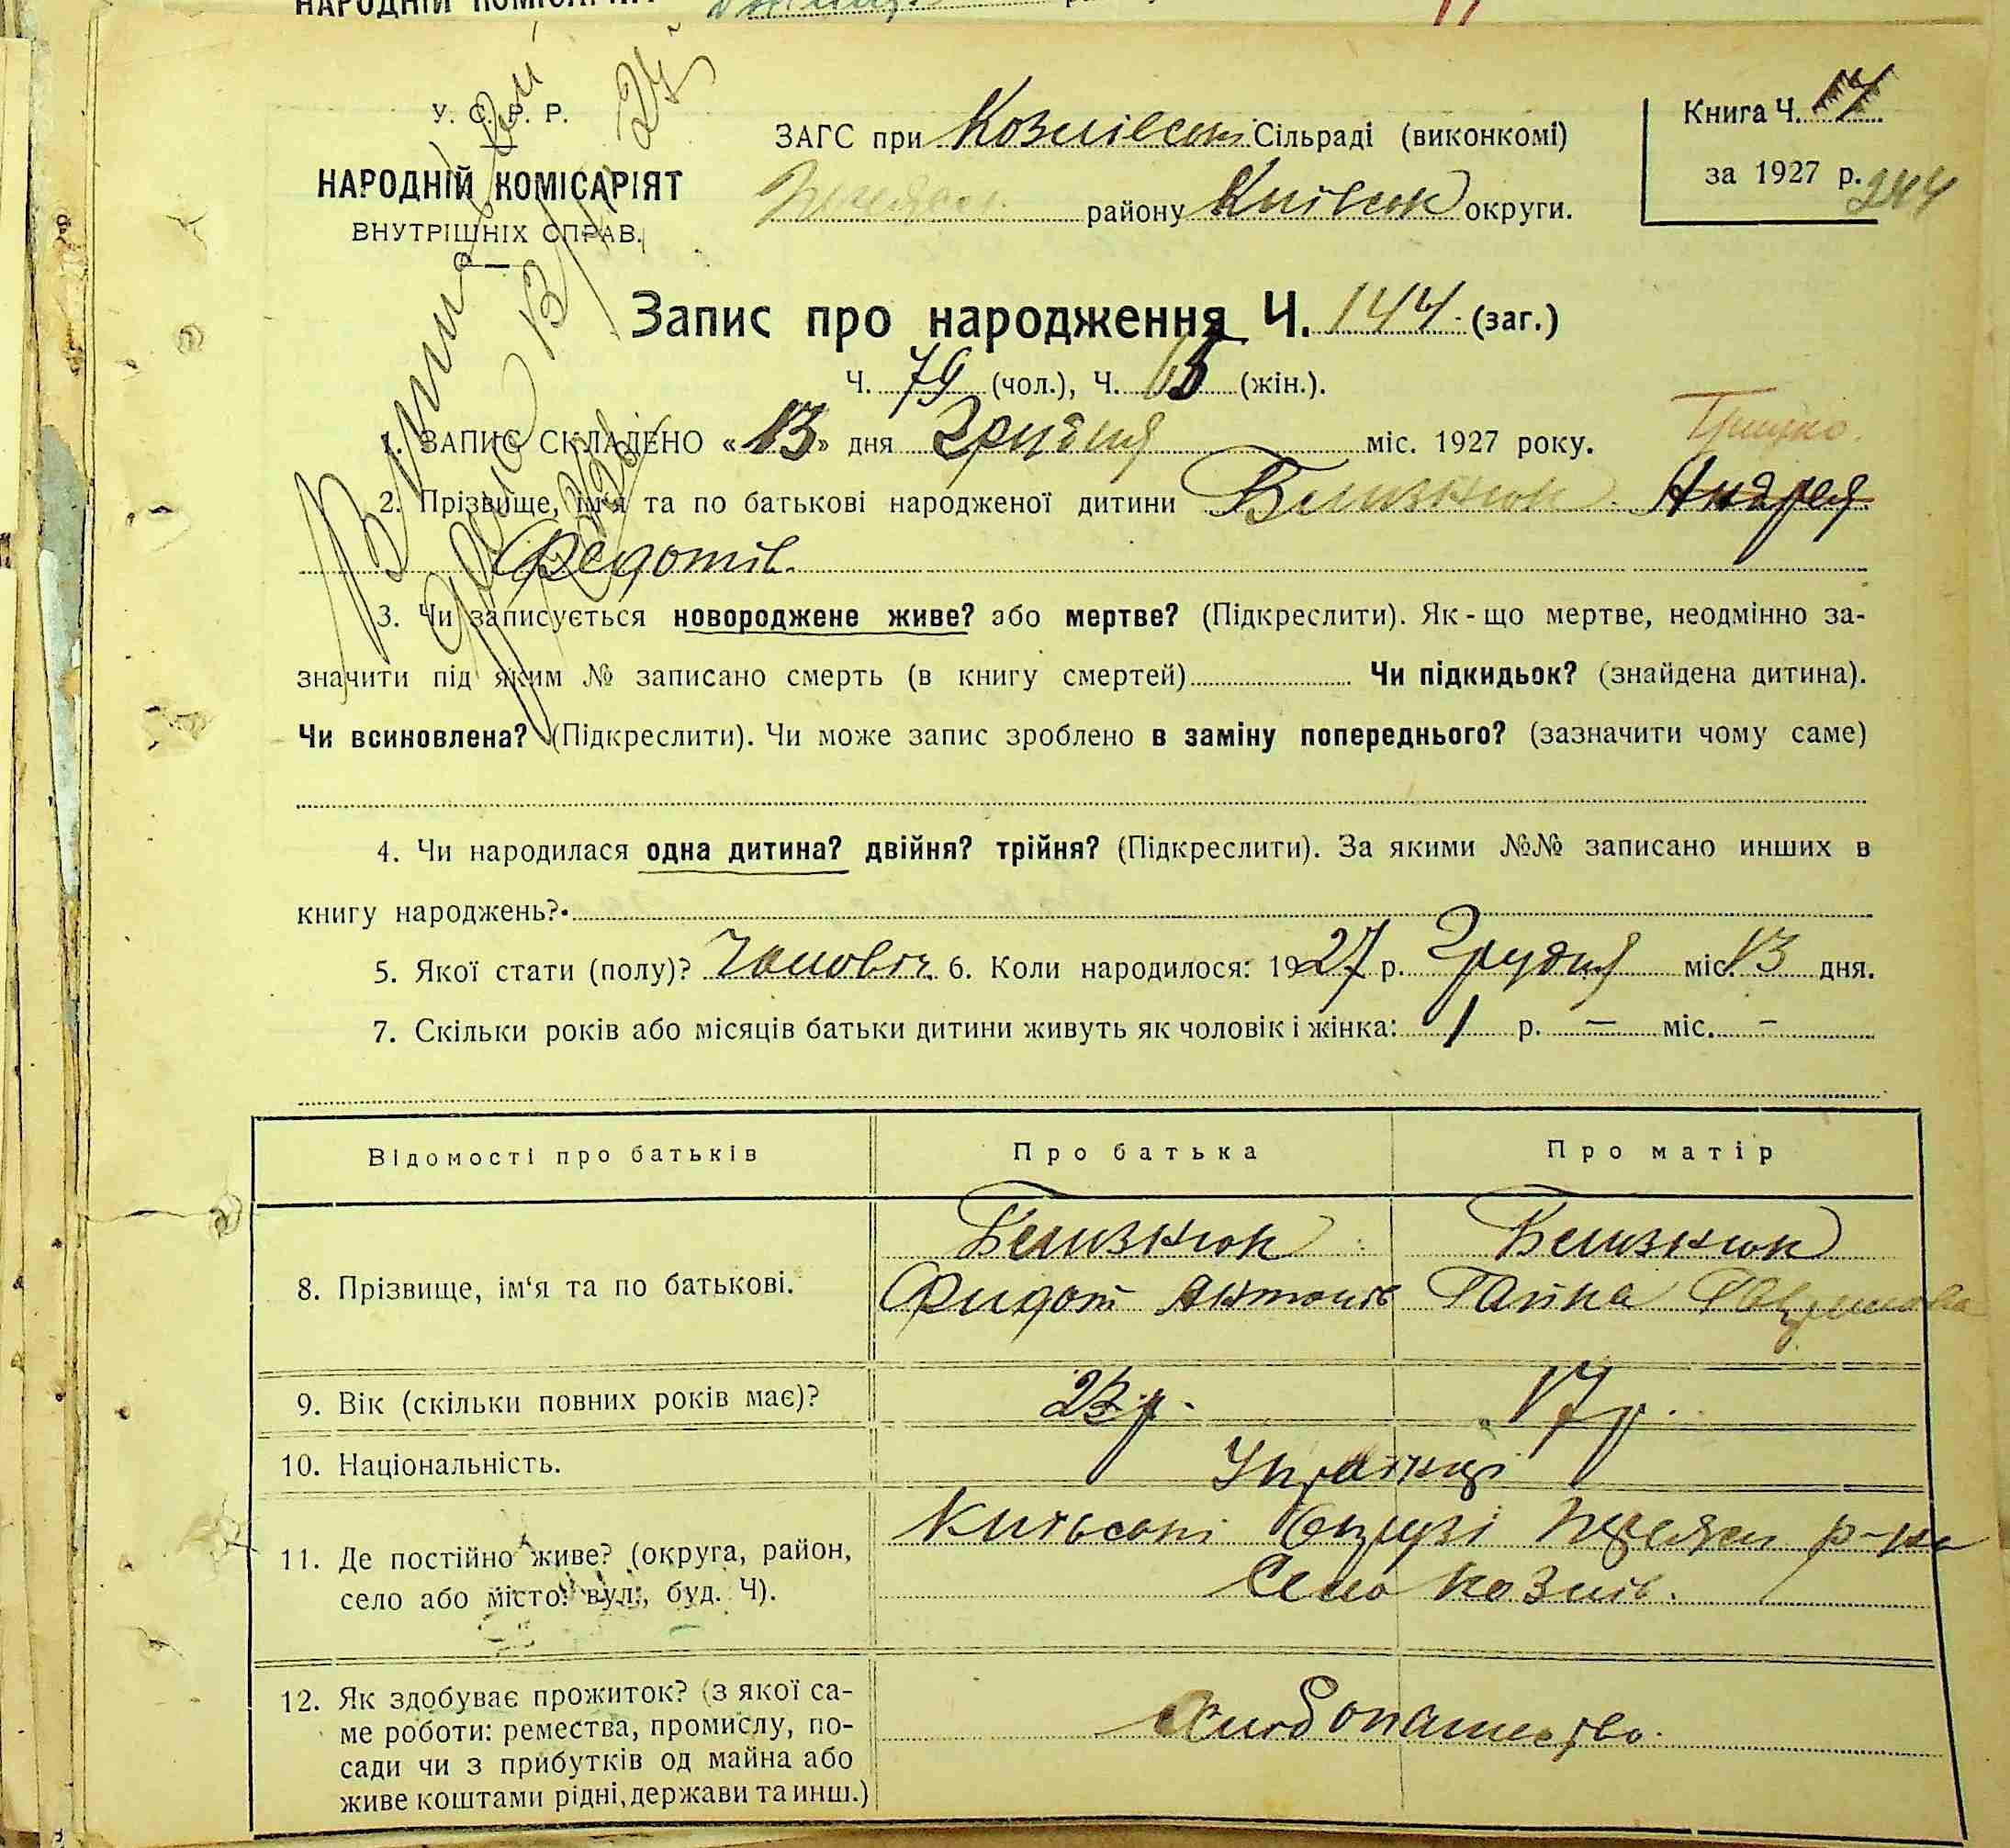 НАРОДНІЙ КОМІСАРІЯТ
У. С. Р. Р.
НАРОДНІЙ КОМІСАРІЯТ
ВНУТРІШНІХ СПРАВ.
ЗАГС при Козинськ Сільраді (виконкомі)
району Київськ округи.
Книга Ч.
за 1927 р. 244
Запис про народження Ч. 144 (заг.)
Ч. 79 (чол.), Ч. 65 (жін.).
1. ЗАПИС СКЛАДЕНО «13» дня Грудня міс. 1927 року.
Грицько.
2. Прізвище, ім'я та по батькові народженої дитини Близнюк Андрей
Федотів.
3. Чи записується новороджене живе? або мертве? (Підкреслити). Як-що мертве, неодмінно за-
значити під яким № записано смерть (в книгу смертей) Чи підкидьок? (знайдена дитина).
Чи всиновлена? (Підкреслити). Чи може запис зроблено в заміну попереднього? (зазначити чому саме)
4. Чи народилася одна дитина? двійня? трійня? (Підкреслити). За якими №№ записано инших в
книгу народжень?
5. Якої стати (полу)? Чоловіч. 6. Коли народилося: 1927 р. Грудня міс. 13 дня.
7. Скільки років або місяців батьки дитини живуть як чоловік і жінка: 1 р. — міс. —
Відомості про батьків Про батька Про матір
8. Прізвище, ім'я та по батькові. Близнюк Близнюк
Фидот Антонів Ганна
9. Вік (скільки повних років має)? 23 р. 17 р.
10. Національність. Українці
11. Де постійно живе? (округа, район,
село або місто: вул., буд. Ч).
Київській Окрузі р-на
Село Козин.
12. Як здобуває прожиток? (з якої са-
ме роботи: ремества, промислу, по-
сади чи з прибутків од майна або
живе коштами рідні, держави та инш.)
Хлібопашество.